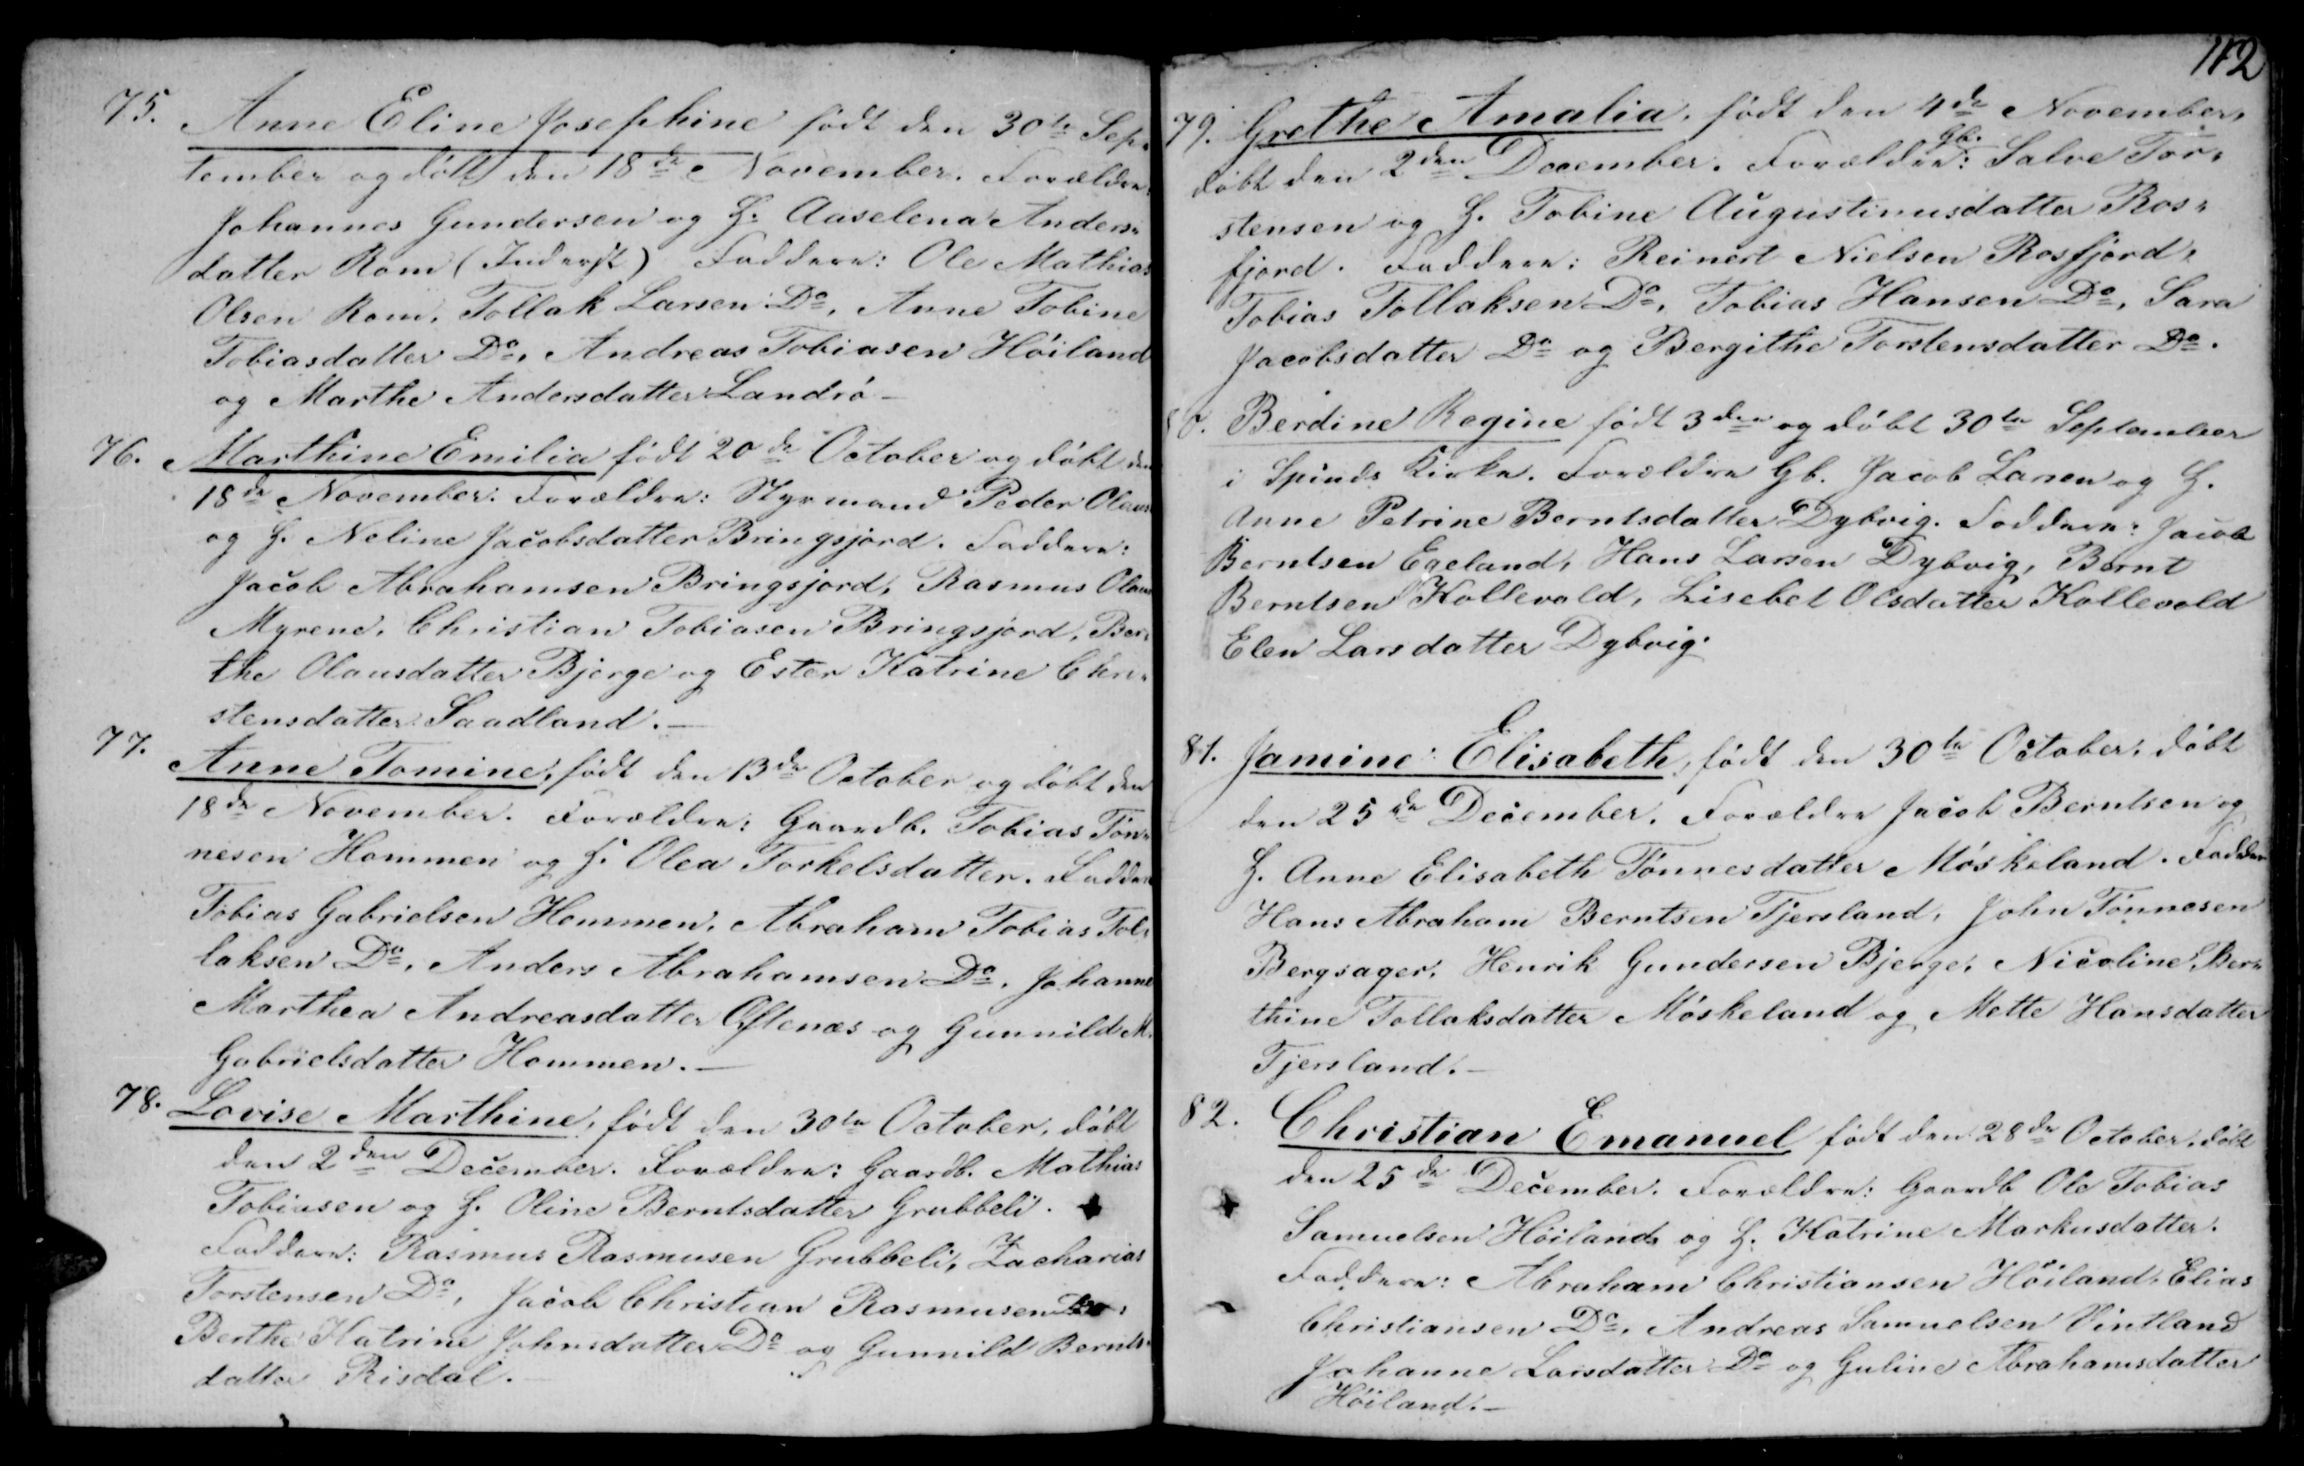 75. Anne Eline Josephine født den 30te Sep-
tember og døbt den 18de November. Forældre:
Johannes Gundersen og H. Aaselena Anders-
datter Rom (Inderst) Faddere: Ole Mathias
Olsen Rom, Tollak Larsen Do, Anne Tobine
Tobiasdatter Do, Andreas Tobiasen Höiland
og Marthe Andersdatter Landrø -
76. Marthine Emilia født 20de October og døbt den
18de November. Forældre: Styrmand Peder Olaus
og H. Neline Jacobsdatter Bringsjord. Faddere:
Jacob Abrahamsen Bringsjord, Rasmus Olaus
Myrene, Christian Tobiasen Bringsjord, Ber-
the Olausdatter Bjerge og Ester Katrine Chri-
stensdatter Saadland. -
77. Anne Tomine, født den 13de October og døbt den
18de November. Forældre: Gaardb. Tobias Tøn-
nesen Hommen og H. Olea Torkelsdatter. Faddere
Tobias Gabrielsen Hommen, Abraham Tobias Tol-
laksen Do, Anders Abrahamsen Do, Johanne
Marthea Andreasdatter Oftenæs og Gunnild M.
Gabrielsdatter Hommen. -
78. Lovise Marthine, født den 30te October, døbt
den 2den December. Forældre: Gaardb. Mathias
Tobiasen og H. Oline Berntsdatter Grubbeli.
Faddere: Rasmus Rasmusen Grubbeli, Zacharias
Torstensen Do, Jacob Christian Rasmusen Do,
Berthe Katrine Johnsdatter Do og Gunnild Bernts-
datter Risdal. -
112
79. Grethe Amalia, født den 4de November,
Gb.
døbt den 2den December. Forældre: Salve Tor-
stensen og H. Tobine Augustinusdatter Ros-
fjord. Faddere: Reinert Nielsen Rosfjord,
Tobias Tollaksen Do, Tobias Hansen Do, Sara
Jacobsdatter Do og Bergithe Torstensdatter Do.
80. Berdine Regine født 3den og døbt 30te September
i Spinds Kirke. Forældre Gb. Jacob Larsen og H.
Anne Petrine Berntsdatter Dybvig. Faddere: Jacob
Berntsen Egeland, Hans Larsen Dybvig, Bernt
Berntsen Kollevold, Lisebet Olsdatter Kollevold
Elen Larsdatter Dybvig.
81. Jamine Elisabeth, født den 30te October, døbt
den 25de December. Forældre Jacob Berntsen og
H. Anne Elisabeth Tönnesdatter Möskeland. Faddere
Hans Abraham Berntsen Tjersland, John Tönnesen
Bergsager, Henrik Gundersen Bjerge, Nicoline Ber-
thine Tollaksdatter Möskeland og Mette Hansdatter
Tjersland. -
82. Christian Emanuel født den 28de October, døbt
den 25de December. Forældre: Gaardb Ole Tobias
Samuelsen Höiland og H. Katrine Markusdatter.
Faddere: Abraham Christiansen Höiland, Elias
Christiansen Do, Andreas Samuelsen Vintland
Johanne Larsdatter Do og Guline Abrahamsdatter
Höiland. -